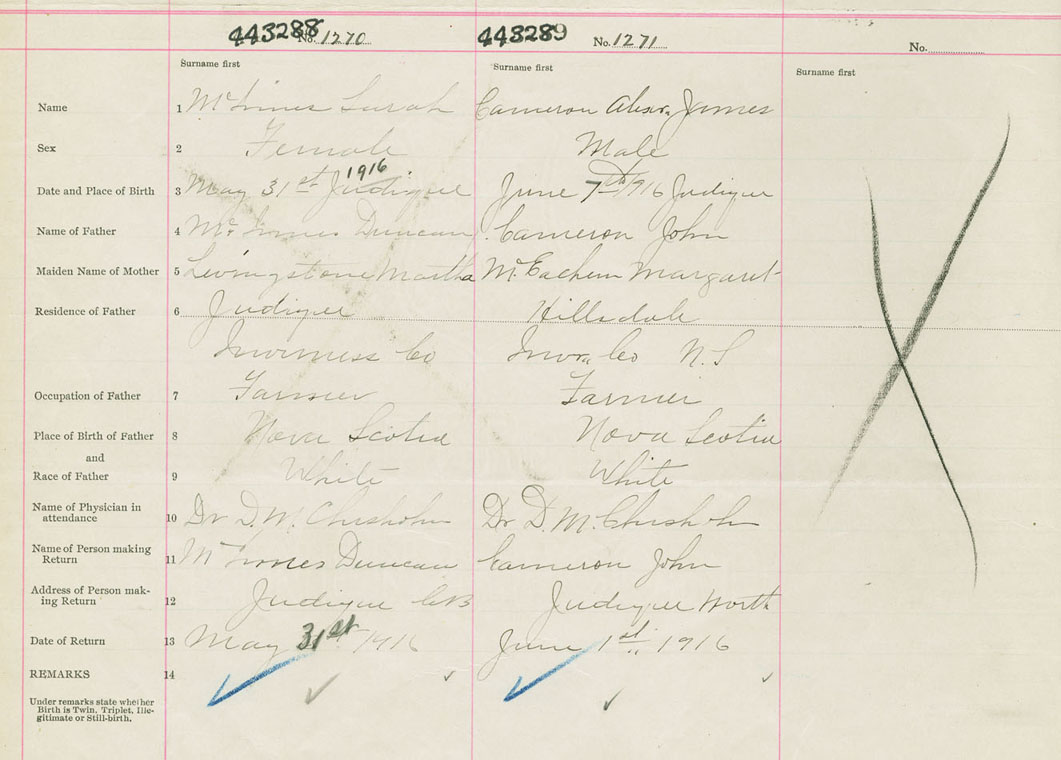 443288 No. 1270 443289 No. 1271 No.
Surname first Surname first Surname first
Name 1 McInnes Sarah Cameron Alexr. James
Sex 2 Female Male
Date and Place of Birth 3 May 31st 1916 Judique June 7th 1916 Judique
Name of Father 4 McInnes Duncan Cameron John
Maiden Name of Mother 5 Livingstone Martha McEachern Margaret
Residence of Father 6 Judique Hillsdale
Inverness Co Invrs Co N.S
Occupation of Father 7 Farmer Farmer
Place of Birth of Father 8 Nova Scotia Nova Scotia
and
Race of Father 9 White White
Name of Physician in
attendance 10 Dr D.W. Chisholm Dr D.M. Chisholm
Name of Person making
Return 11 McInnes Duncan Cameron John
Address of Person mak-
ing Return 12 Judique C.B Judique North
Date of Return 13 May 31st 1916 June 1st 1916
REMARKS 14
Under remarks state whether
Birth is Twin, Triplet, Ille-
gitimate or Still-birth.